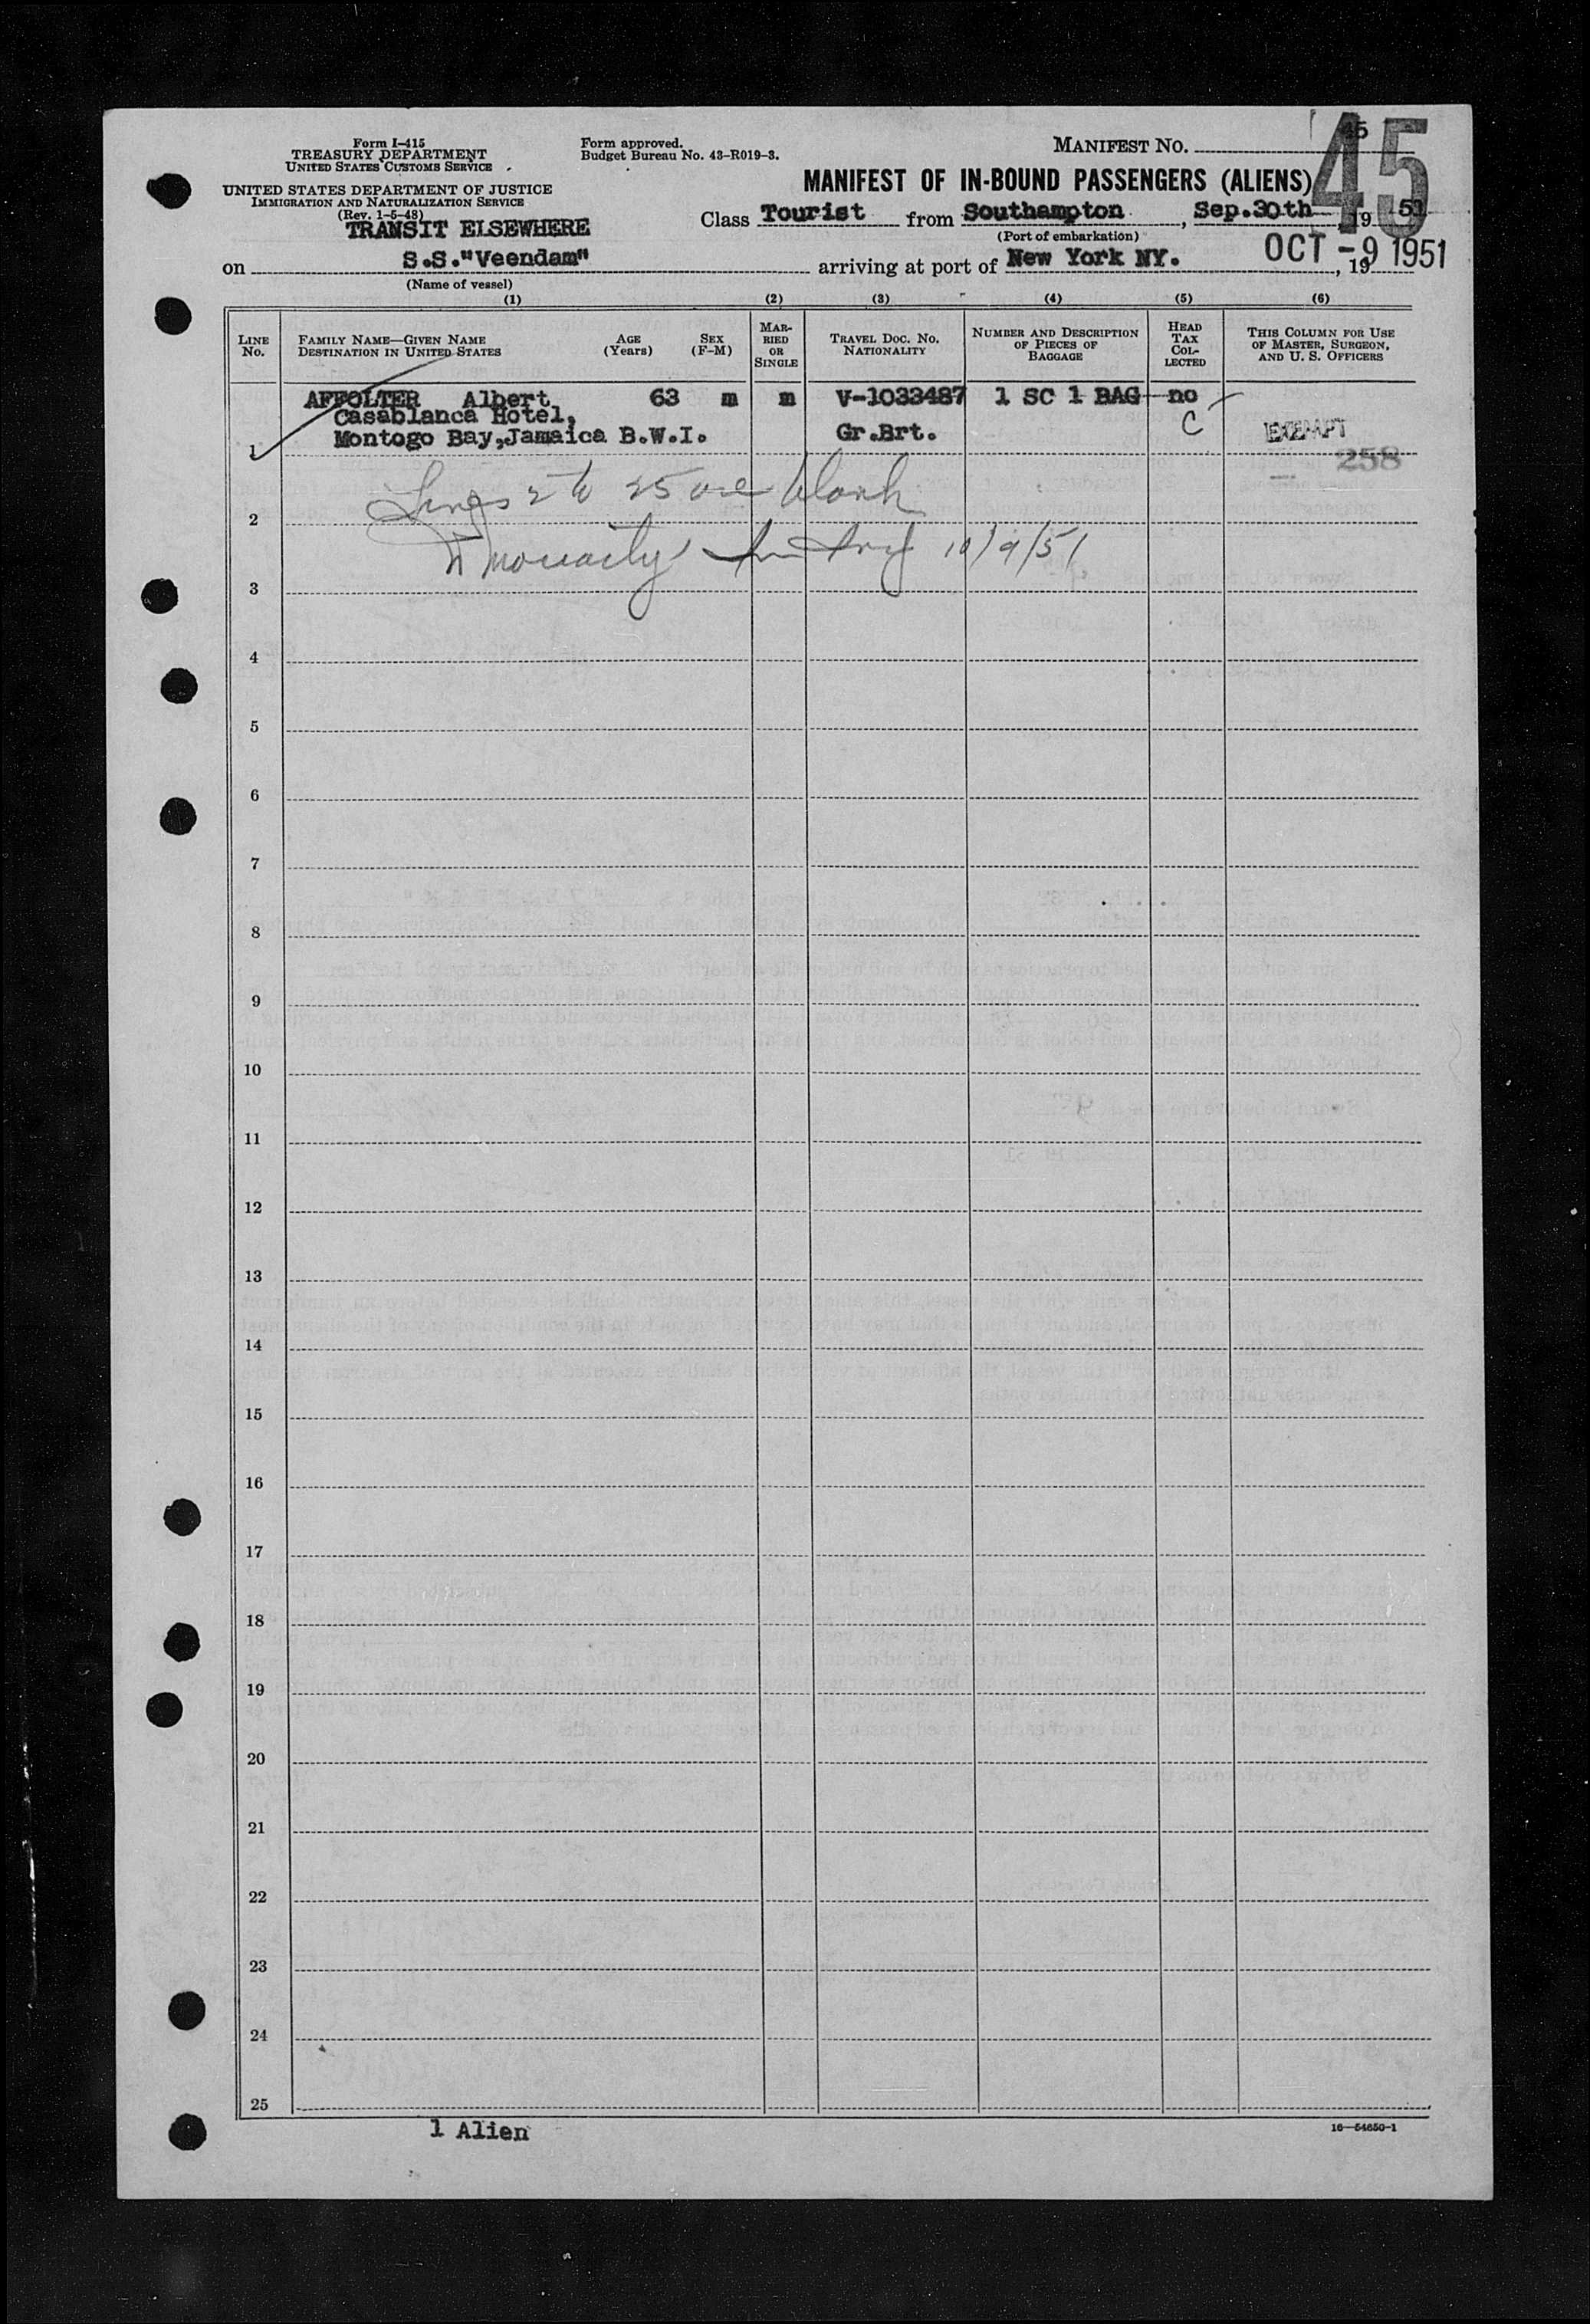 Form I-415
TREASURY DEPARTMENT
UNITED STATES CUSTOMS SERVICE
Form approved.
Budget Bureau No. 43-R019-3.
MANIFEST NO. 45
45
UNITED STATES DEPARTMENT OF JUSTICE
IMMIGRATION AND NATURALIZATION SERVICE
(Rev. 1-5-48)
MANIFEST OF IN-BOUND PASSENGERS (ALIENS)
TRANSIT ELSEWHERE
Class Tourist from Southampton, Sep.30th 19 51
(Port of embarkation)
on S.S."Veendam" arriving at port of New York NY. , 19
OCT -9 1951
(Name of vessel)
(1) (2) (3) (4) (5) (6)
LINE No.
FAMILY NAME—GIVEN NAME
DESTINATION IN UNITED STATES
AGE (Years)
SEX (F-M)
MARRIED OR SINGLE
TRAVEL DOC. NO. NATIONALITY
NUMBER AND DESCRIPTION OF PIECES OF BAGGAGE
HEAD TAX COLLECTED
THIS COLUMN FOR USE OF MASTER, SURGEON, AND U. S. OFFICERS
AFFOLTER Albert 63 m m V-1033487 1 SC 1 BAG no
Casablanca Hotel, C
Montogo Bay,Jamaica B.W.I. Gr.Brt. EXEMPT
1
258
Lines 2 to 25 are blank
2
10/9/51
3
4
5
6
7
8
9
10
11
12
13
14
15
16
17
18
19
20
21
22
23
24
25
1 Alien
16—54650-1